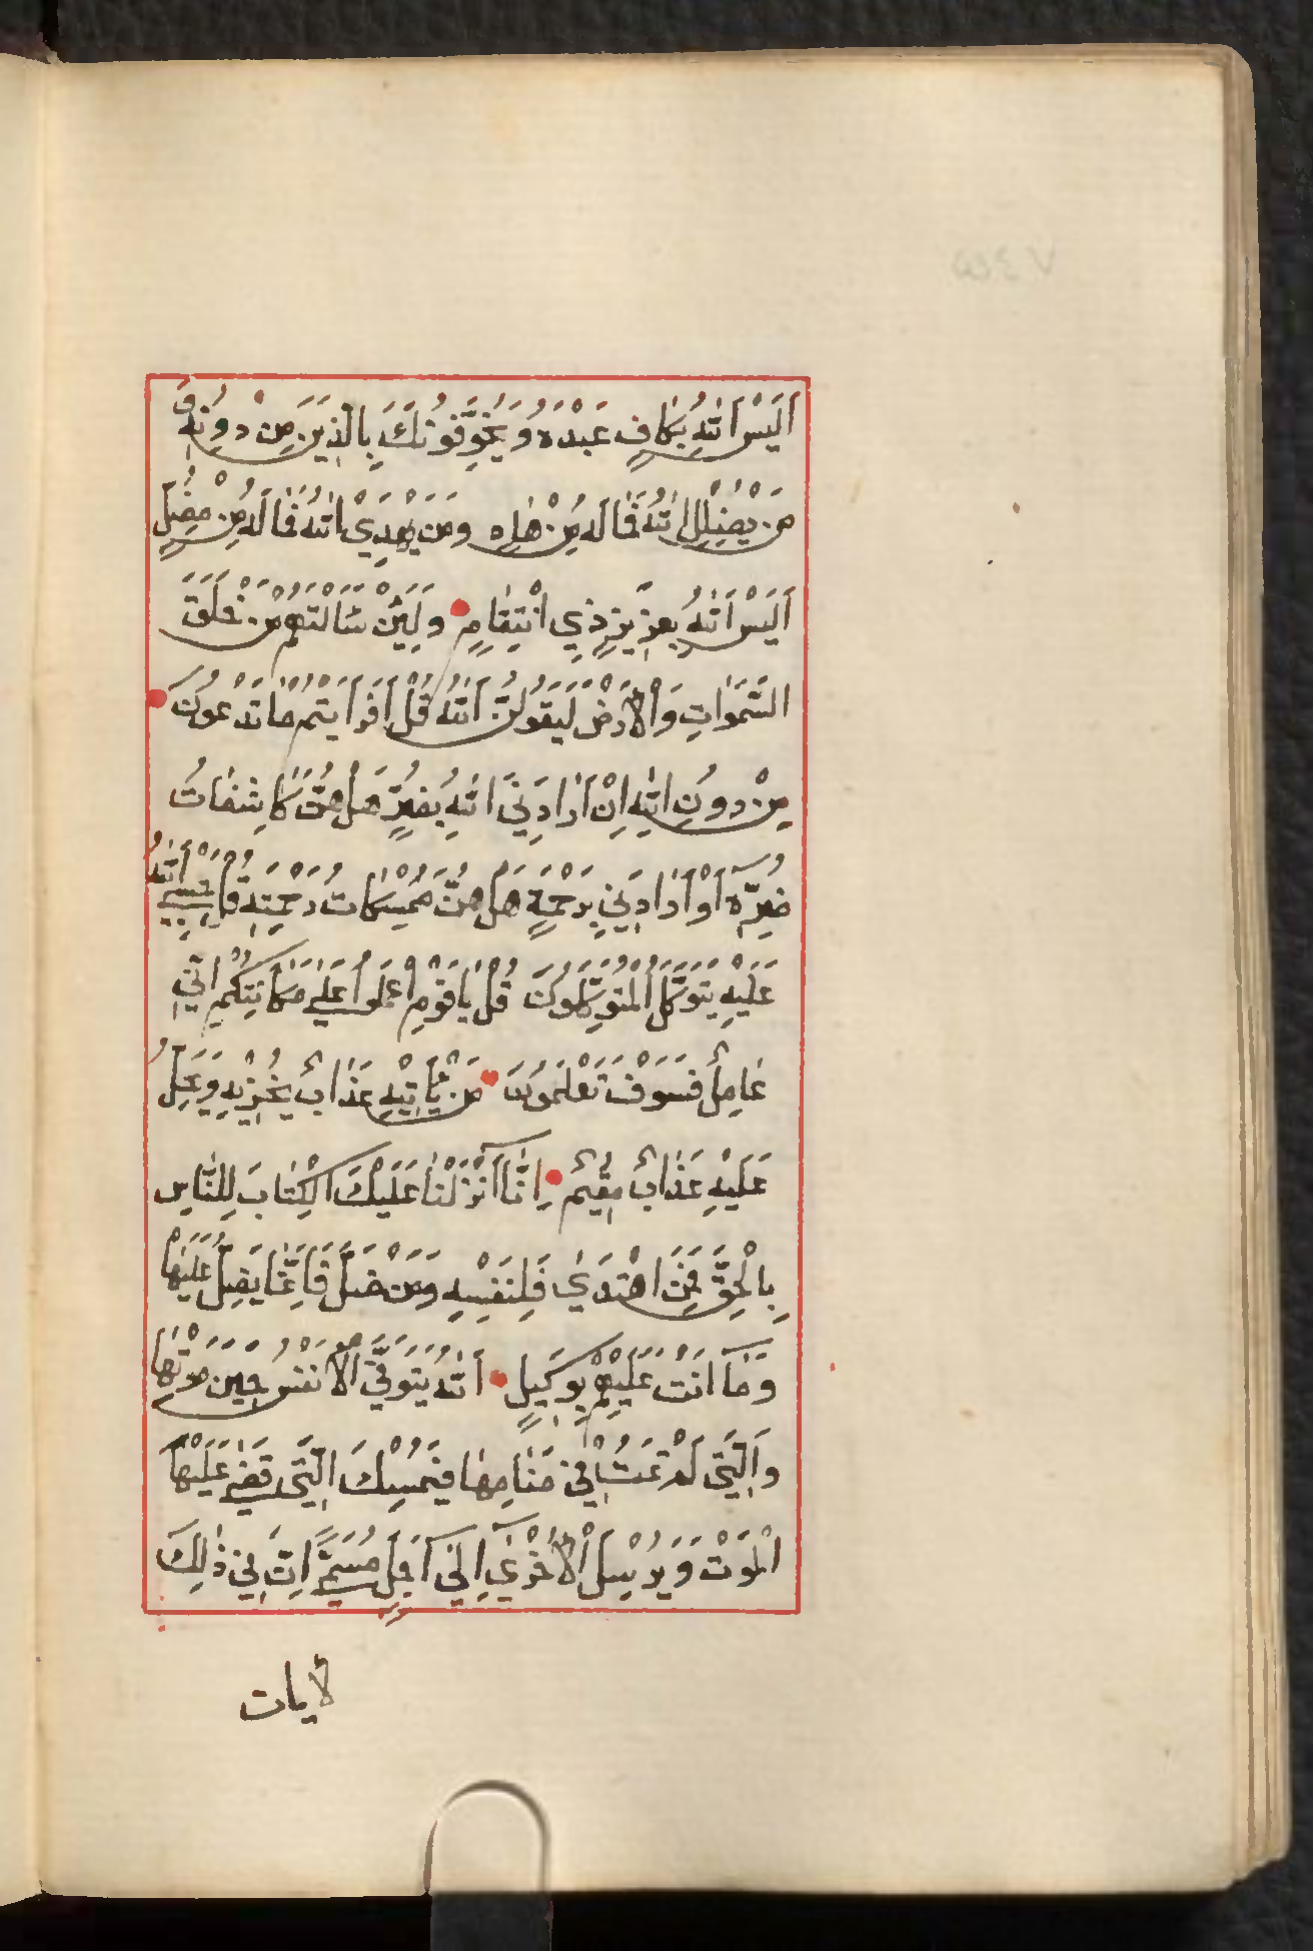 اَلَيْسَ اَللّٰهُ بِكَافٍ عَبْدَهُ وَيُخَوِّفُونَكَ بِالَّذِينَ مِنْ دُونِهِ وَ
مَنْ يُضْلِلِ اللّٰهُ فَمَا لَهُ مِنْ هَادٍ وَمَنْ يَهْدِيْ اللّٰهُ فَمَا لَهُ مِنْ مُضِلٍّ
اَلَيْسَ اَللّٰهُ بِعَزِيزٍ ذِي انْتِقَامٍ وَلَئِنْ سَاَلْتَهُمْ مَنْ خَلَقَ
السَّمٰوَاتِ وَالْاَرْضَ لَيَقُولُنَّ اَللّٰهُ قُلْ اَفَرَاَيْتُمْ مَا تَدْعُونَ
مِنْ دُونِ اللّٰهِ اِنْ اَرَادَنِيَ اللّٰهُ بِضُرٍّ هَلْ هُنَّ كَاشِفَاتُ
ضُرِّهِ اَوْ اَرَادَنِي بِرَحْمَةٍ هَلْ هُنَّ مُمْسِكَاتُ رَحْمَتِهِ قُلْ حَسْبِيَ اَللّٰهُ
عَلَيْهِ يَتَوَكَّلُ الْمُتَوَكِّلُونَ قُلْ يَا قَوْمِ اعْمَلُوا عَلٰى مَكَانَتِكُمْ اِنِّي
عَامِلٌ فَسَوْفَ تَعْلَمُونَ مَنْ يَأْتِيْهِ عَذَابٌ يُخْزِيْهِ وَيَحِلُّ
عَلَيْهِ عَذَابٌ مُقِيْمٌ اِنَّا اَنْزَلْنَا عَلَيْكَ الْكِتَابَ لِلنَّاسِ
بِالْحَقِّ فَمَنِ اهْتَدَىٰ فَلِنَفْسِهِ وَمَنْ ضَلَّ فَاِنَّمَا يَضِلُّ عَلَيْهَا
وَمَآ اَنْتَ عَلَيْهِمْ بِوَكِيلٍ اَللّٰهُ يَتَوَفَّى الْاَنْفُسَ حِيْنَ مَوْتِهَا
وَالَّتِي لَمْ تَمُتْ فِي مَنَامِهَا فَيُمْسِكُ الَّتِي قَضٰى عَلَيْهَا
الْمَوْتَ وَيُرْسِلُ الْاُخْرٰىٓ اِلٰىٓ اَجَلٍ مُسَمًّى اِنَّ فِي ذٰلِكَ
لأيات